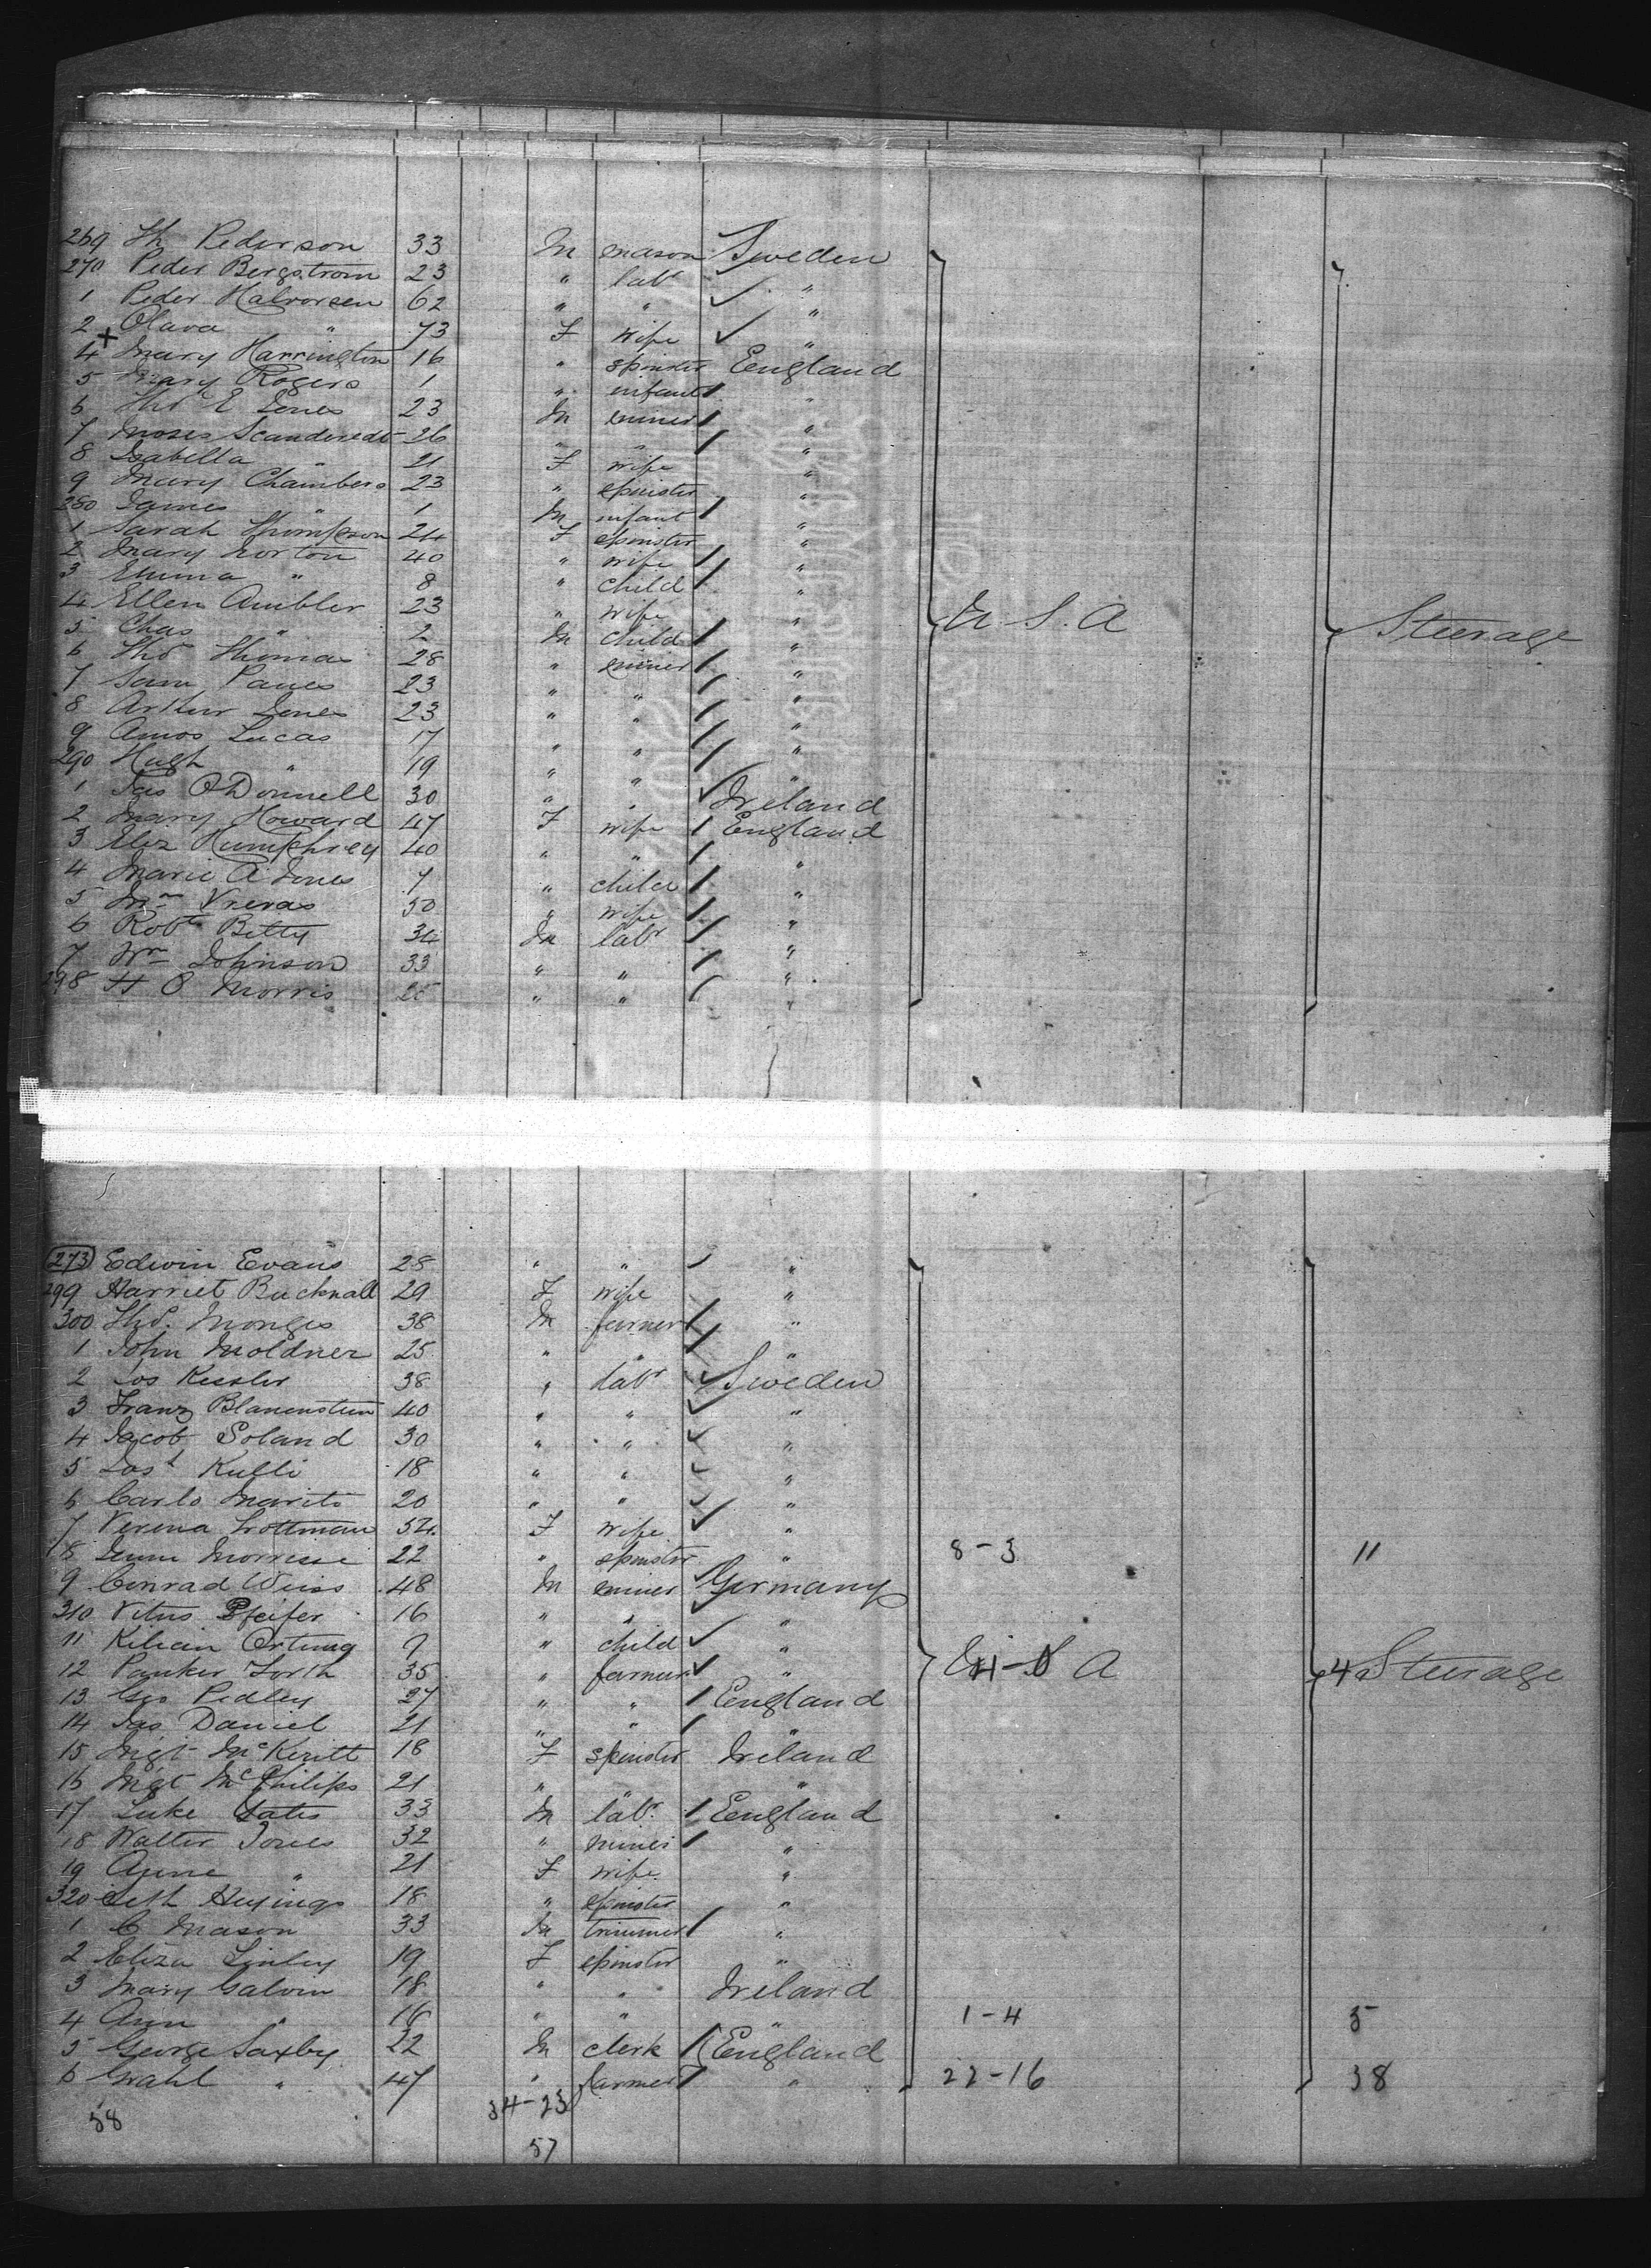 269 Th Pederson 33 M mason Sweden
270 Peder Bergstrom 23 " labr "
1 Peder Halvorsen 62 " " "
2 Olava " 73 F wife "
4 Mary Harrington 16 " spinster England
5 Mary Rogers 1 " infant "
6 Thos E Jones 23 M miner "
7 Moses 26 " " "
8 Isabella " 21 F wife "
9 Mary Chambers 23 " spinster "
280 James " 1 M infant "
1 Sarah Thompson 24 F spinster "
2 Mary Norton 40 " wife "
3 Emma " 8 " child "
4 Ellen Ambler 23 " wife "
5 Chas " 2 M child " U S. A Steerage
6 Thos Thomas 28 " miner "
7 Sam Panes 23 " " "
8 Arthur Jones 23 " " "
9 Amos Lucas 17 " " "
290 Hugh " 19 " " "
1 Jas O'Donnell 30 " " Ireland
2 Mary Howard 47 F wife England
3 Eliz Humphrey 40 " " "
4 Marie A Jones 7 " child "
5 50 " wife "
6 Robt Betty 34 M labr "
7 Wm Johnson 33 " " "
298 H O Morris 25 " " "
273 Edwin Evans 28 " " "
299 Harriet Bucknall 29 F wife "
300 Thos. Monges 38 M farmer "
1 John Moldner 25 " " "
2 Jos Kessler 38 " labr Sweden
3 Franz Blanenstein 40 " " "
4 Jacob Soland 30 " " "
5 Kulli 18 " " "
6 Carlo Marito 20 " " "
7 Verena Trottman 54 F wife "
8 22 " spinster " 8-3 11
9 Conrad Weiss 48 M miner Germany
310 Vitus Pfeifer 16 " " "
11 Kilian 7 " child "
12 35 " farmer " U S A 4 Steerage
13 Geo Pedley 27 " " England
14 Jas Daniel 21 " " "
15 Mgt 18 F spinster Ireland
16 Mgt McPhilips 21 " " "
17 Luke Yates 33 M labr. England
18 Walter Jones 32 " miner "
19 Anne " 21 F wife "
320 Seth 18 " spinster "
1 C Mason 33 M trimmer "
2 Eliza Linley 19 F spinster "
3 Mary Galvin 18 " " Ireland
4 Ann " 16 " " " 1-4 5
5 George Saxby 22 M clerk England
6 " 47 " farmer " 22-16 38
58 34-23
57